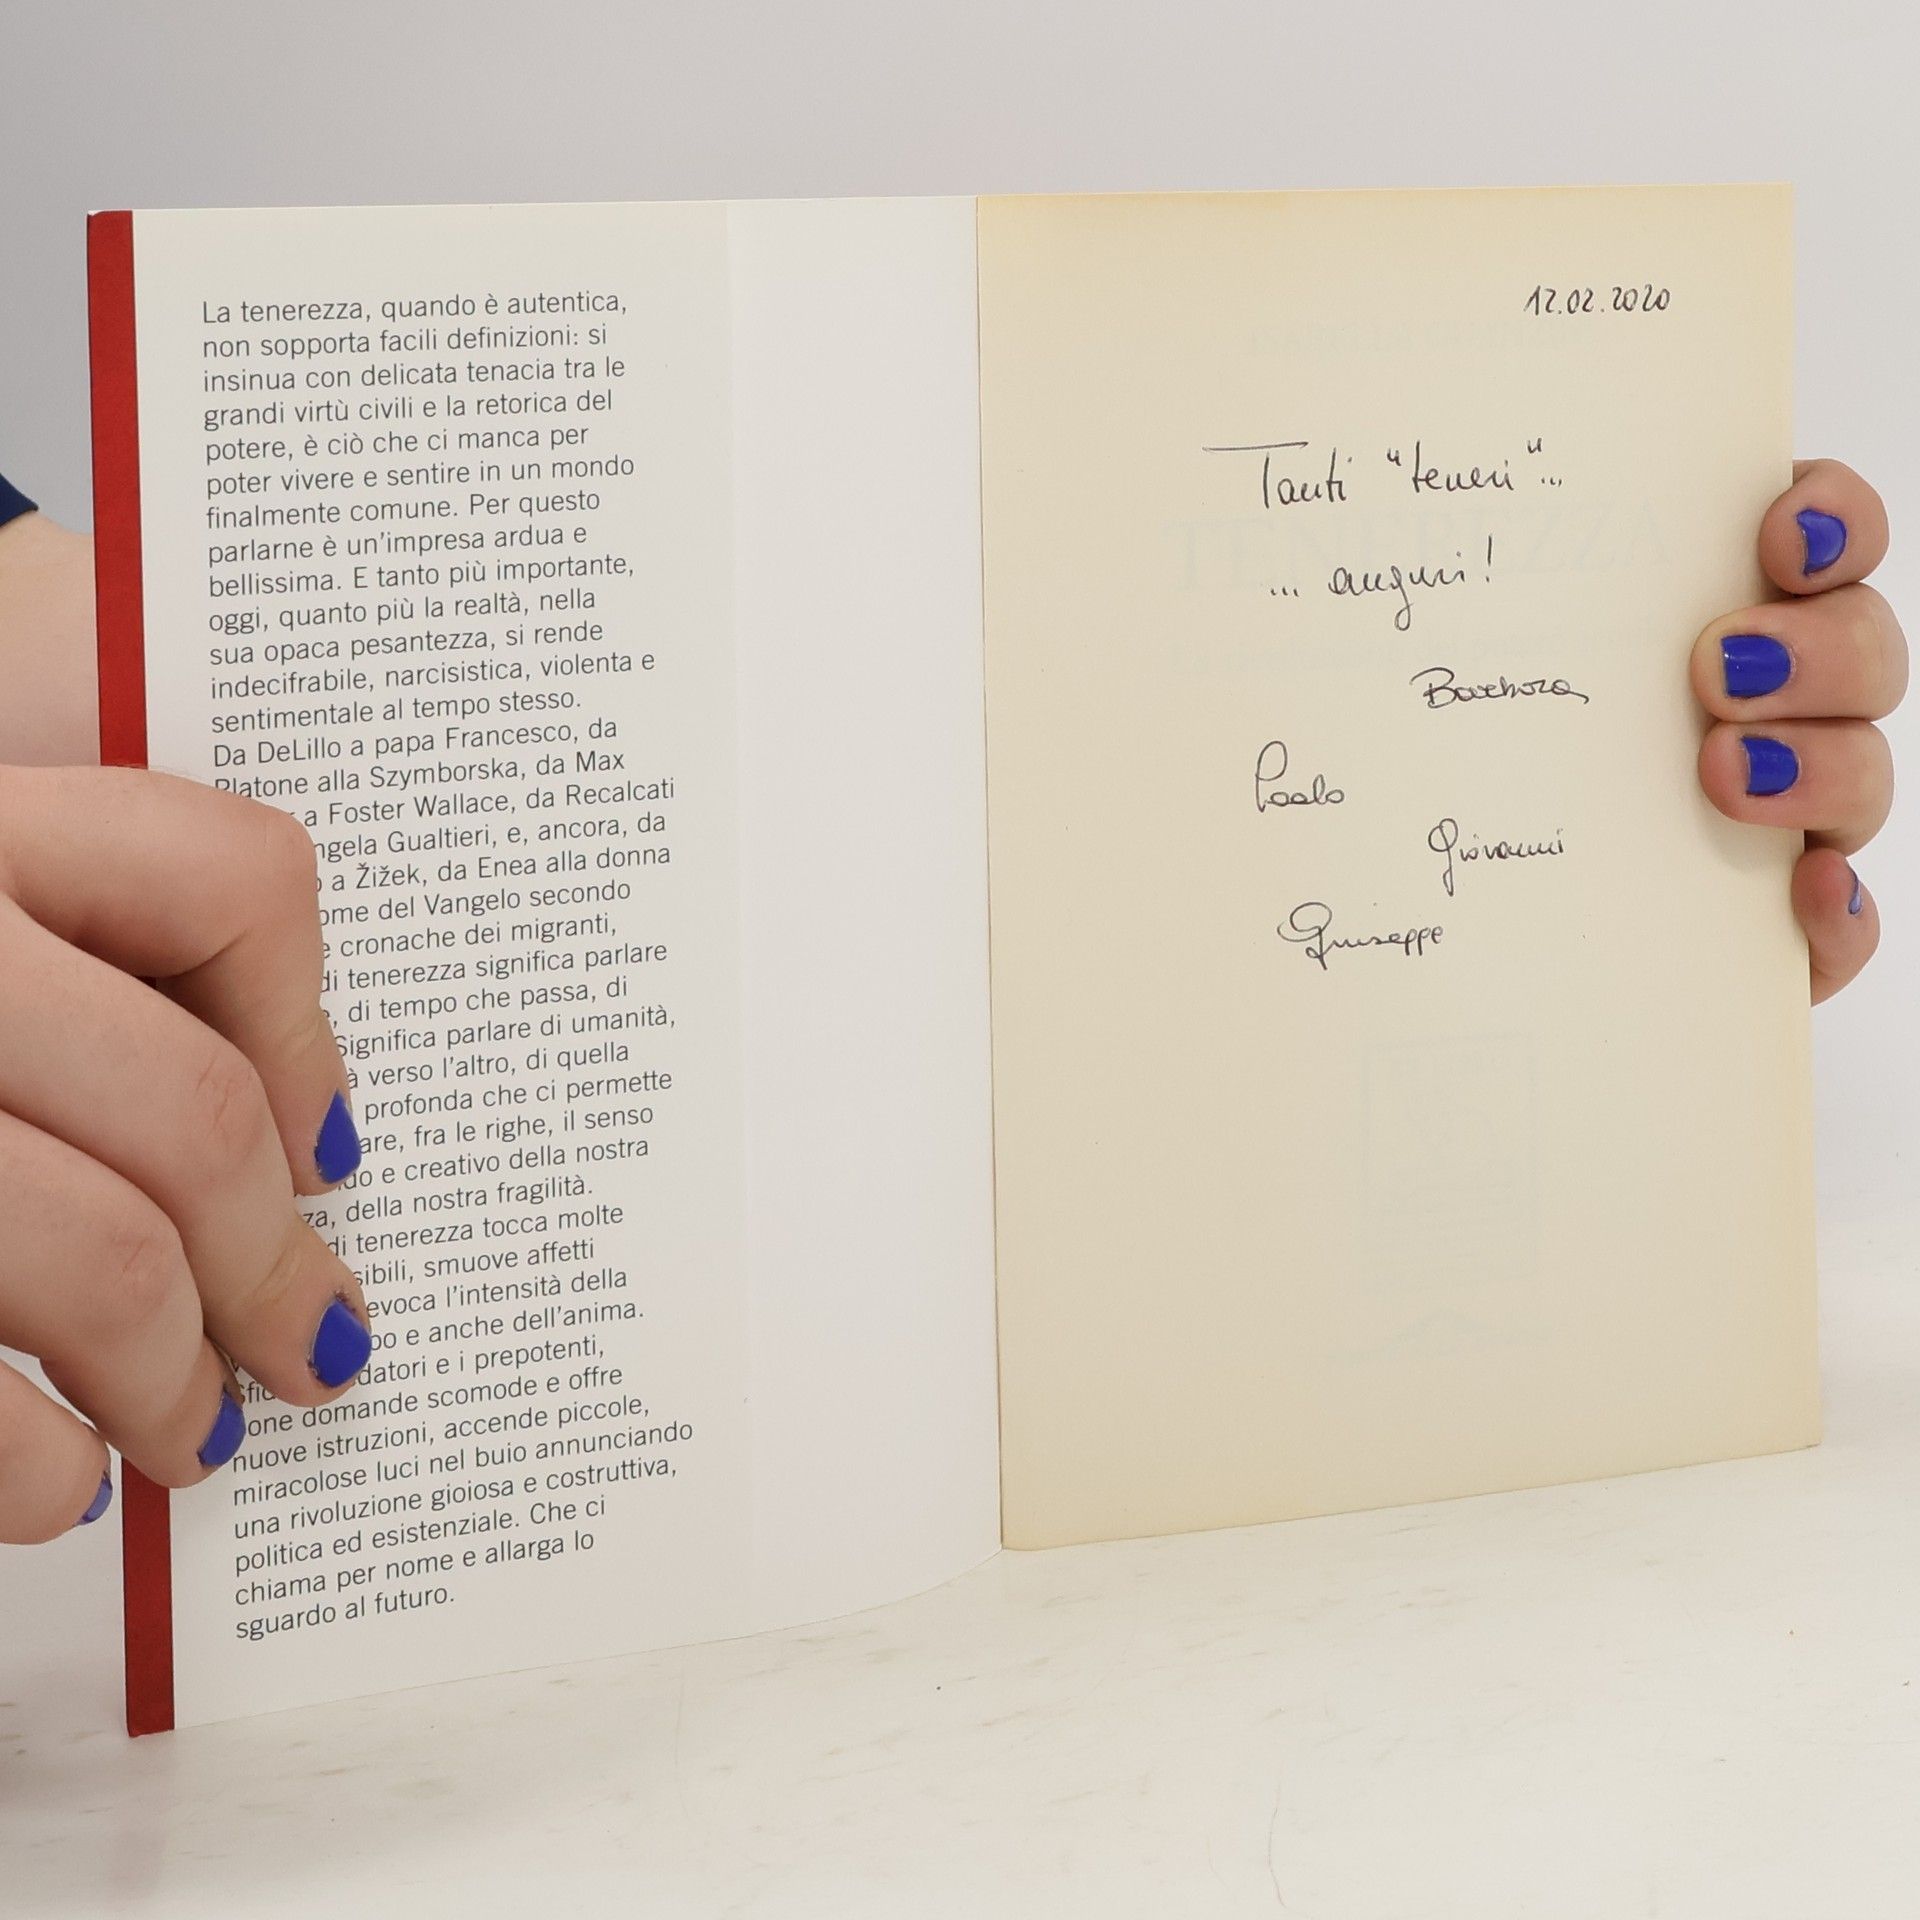 La tenerezza, quando è autentica,
non sopporta facili definizioni: si
insinua con delicata tenacia tra le
grandi virtù civili e la retorica del
potere, è ciò che ci manca per
poter vivere e sentire in un mondo
finalmente comune. Per questo
parlarne è un'impresa ardua e
bellissima. E tanto più importante,
oggi, quanto più la realtà, nella
sua opaca pesantezza, si rende
indecifrabile, narcisistica, violenta e
sentimentale al tempo stesso.
Da DeLillo a papa Francesco, da
Platone alla Szymborska, da Max
a Foster Wallace, da Recalcati
ngela Gualtieri, e, ancora, da
a Žižek, da Enea alla donna
ome del Vangelo secondo
e cronache dei migranti,
di tenerezza significa parlare
, di tempo che passa, di
Significa parlare di umanità,
à verso l'altro, di quella
profonda che ci permette
are, fra le righe, il senso
do e creativo della nostra
za, della nostra fragilità.
di tenerezza tocca molte
sibili, smuove affetti
evoca l'intensità della
po e anche dell'anima.
Sfid datori e i prepotenti,
one domande scomode e offre
nuove istruzioni, accende piccole,
miracolose luci nel buio annunciando
una rivoluzione gioiosa e costruttiva,
politica ed esistenziale. Che ci
chiama per nome e allarga lo
sguardo al futuro.
12.02.2020
Tanti "teneri"...
... auguri!
Barbora
Paolo
Giovanni
Giuseppe